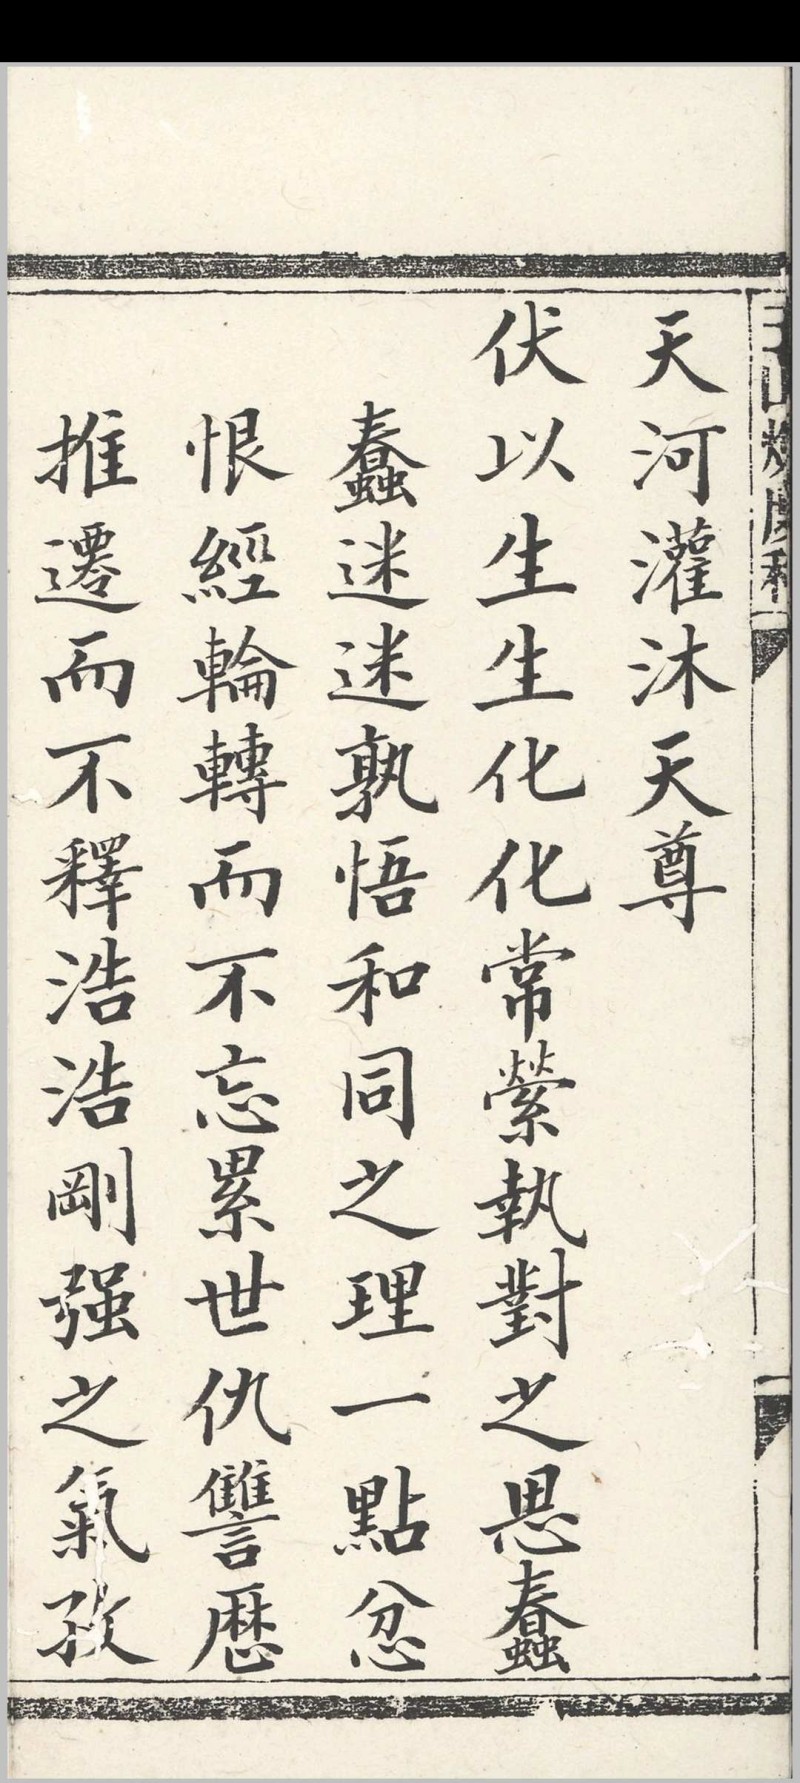 天河灌沐天尊
伏以生生化化常縈執對之思蠢
蠢迷迷孰悟和同之理一點忿
恨經輪轉而不忘累世仇讐歴
推遷而不釋浩浩剛强之氣孜